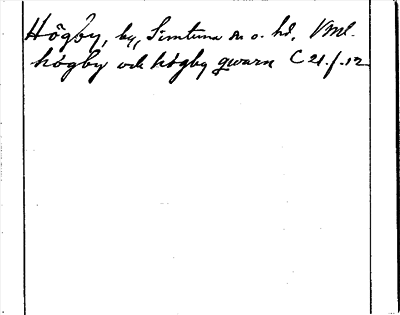 Högby, by, Simtuna sn o. hd, Vml.
högby och högby qwarn C 21. f. 12